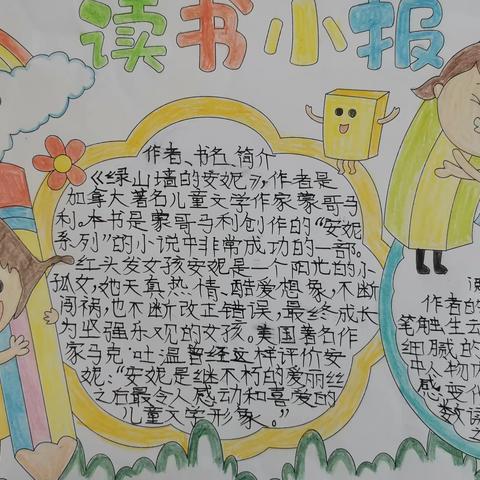 读书小报
作者、书名、简介
《绿山墙的安妮》，作者是
加拿大著名儿童文学作家蒙哥马
利。本书是蒙哥马利创作的“安妮
系列”的小说中非常成功的一部。
红头发女孩安妮是一个阳光的小
孤女，她天真热情、酷爱想象，不断
闯祸，也不断改正错误，最终成长
为坚强乐观的女孩。美国著名作
家马克·吐温曾经这样评价安
妮：“安妮是继不朽的爱丽丝
之后最令人感动和喜爱的
儿童文学形象。”
作者的
笔触生去
细腻的
中人物
感变化
数读
之